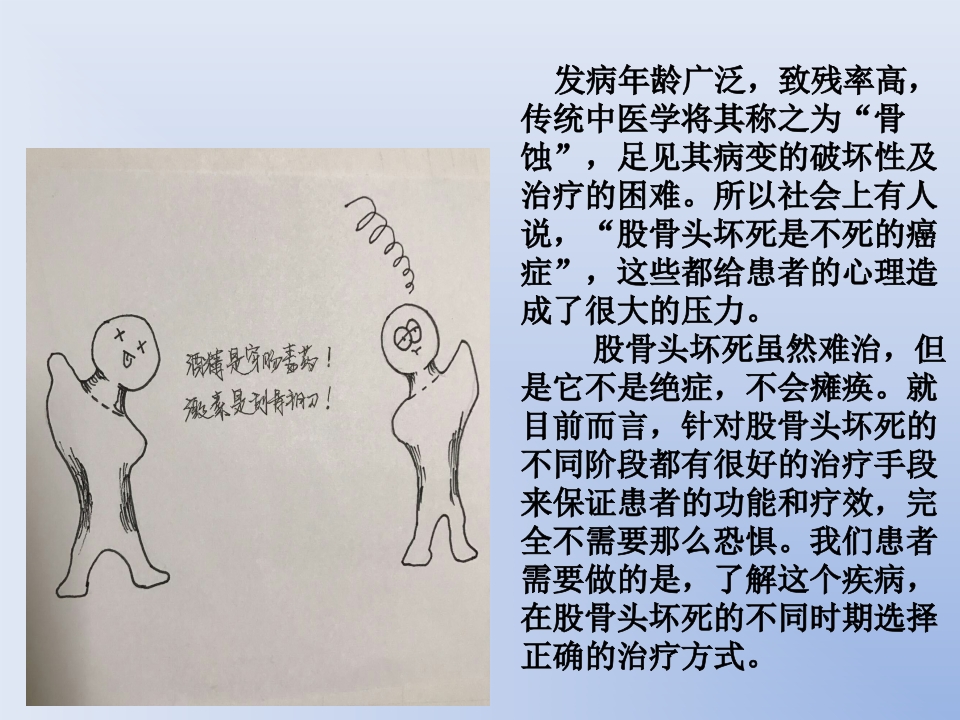 酒精是穿肠毒药！
激素是刮骨钢刀！
发病年龄广泛，致残率高，
传统中医学将其称之为“骨
蚀”，足见其病变的破坏性及
治疗的困难。所以社会上有人
说，“股骨头坏死是不死的癌
症”，这些都给患者的心理造
成了很大的压力。
股骨头坏死虽然难治，但
是它不是绝症，不会瘫痪。就
目前而言，针对股骨头坏死的
不同阶段都有很好的治疗手段
来保证患者的功能和疗效，完
全不需要那么恐惧。我们患者
需要做的是，了解这个疾病，
在股骨头坏死的不同时期选择
正确的治疗方式。